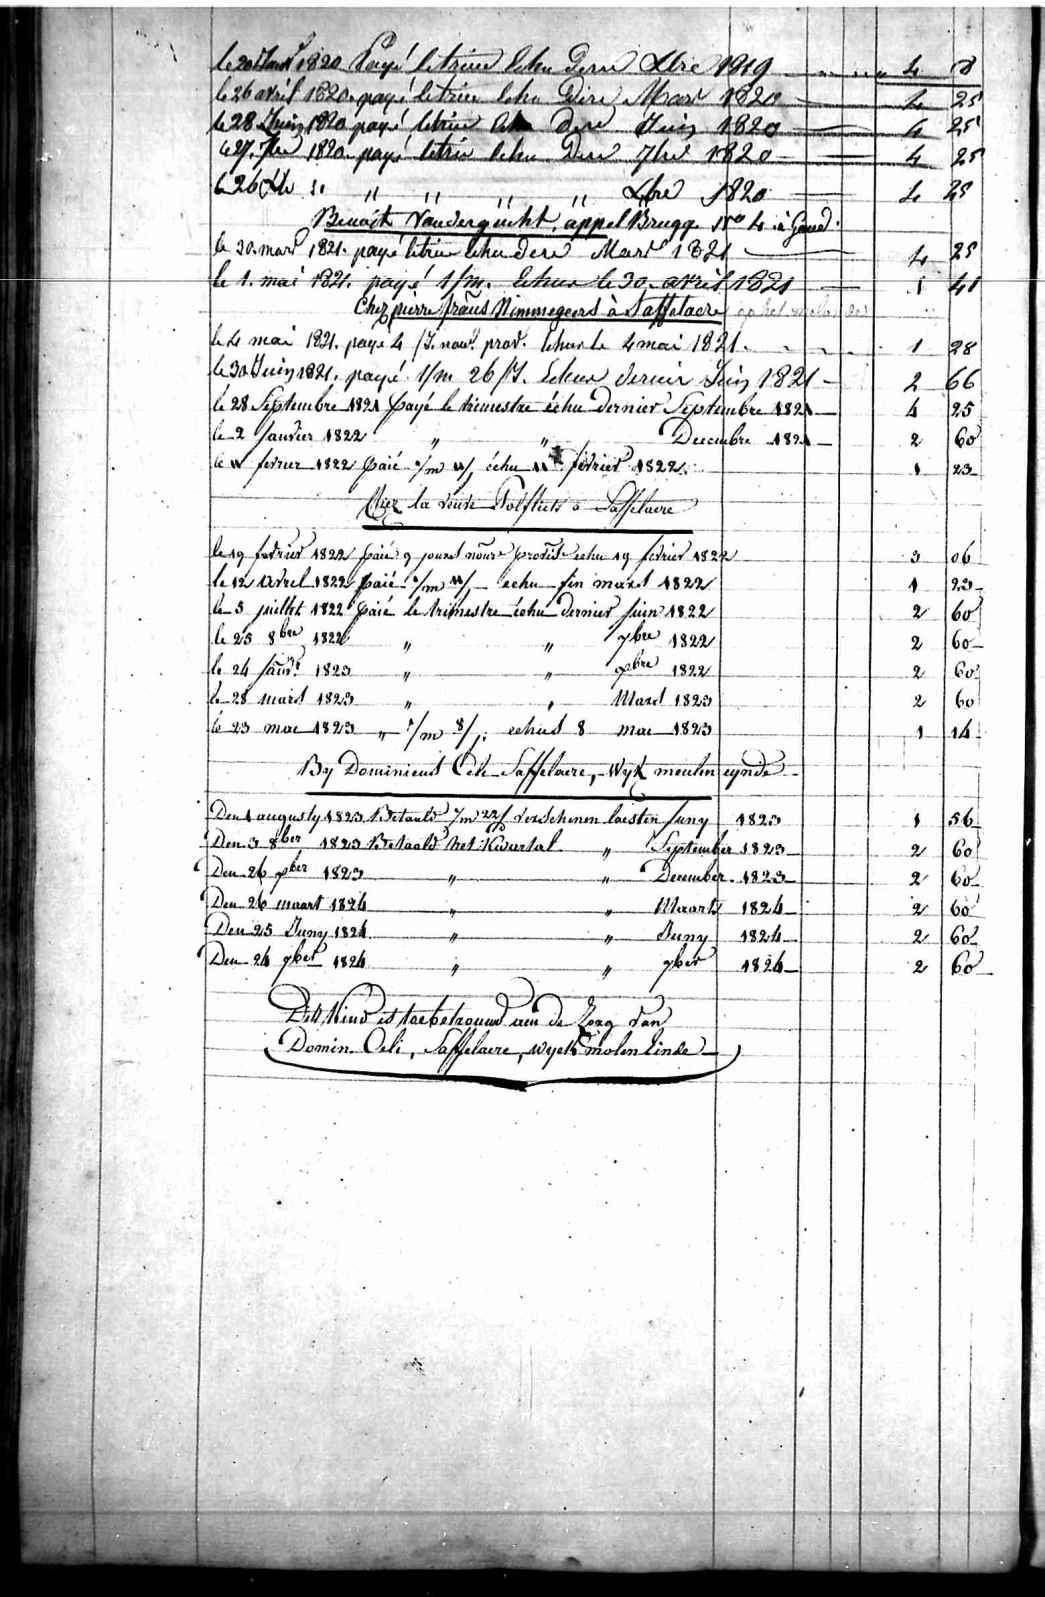 le 20 Janv 1820 Payé le trim Echu Dern Xbre 1819 4 
le 26 avril 1820 payé le trim Echu Dern Mars 1820 4 25
le 28 Juin 1820 payé le trim Echu Dern Juin 1820 4 25
le 27 7bre 1820 payé le trim Echu Dern 7bre 1820 4 25
le 26 Xbre " " " " " Xbre 1820 4 25
Benoit Vandergucht, appel Brugg No 4 à Gand.
le 30 mars 1821 payé le trim Echu Dern Mars 1821 4 25
le 1 mai 1821 payé 1/m. Echu le 30 avril 1821 1 41
Chez pierre frans Nimmegeers à Saffelaere
le 4 mai 1821 payé 4 /J. nouv. prov. Echu le 4 mai 1821. 1 28
le 30 Juin 1821 payé 1/m 26/J. Echu dernier Juin 1821 2 66
le 28 Septembre 1821 payé le trimestre échu dernier Septembre 1821 4 25
le 2 Janvier 1822 " " Decembre 1821 2 60
le 11 fevrier 1822 paié 1/m 11/j échu 11 février 1822 1 23
Chez la veuve à Saffelaere
le 19 fevrier 1822 paié 9 jours nourr provis echu 19 fevrier 1822 3 06
le 12 avril 1822 paié 1/m 11/j echu fin mars 1822 1 23
le 3 juillet 1822 paié le trimestre échu dernier juin 1822 2 60
le 25 8bre 1822 " " 7bre 1822 2 60
le 24 janvr 1823 " " xbre 1822 2 60
le 28 mars 1823 " " Mars 1823 2 60
le 23 mai 1823 " 1/m 8/j: echus 8 mai 1823 1 14
By Dominicus Celi Saffelaere, Wyk meulen eynde
Den 1 augusty 1823 Betaald 1/m 22/d verschenen laesten Juny 1823 1 56
Den 3 8ber 1823 Betaald het Kwartal " September 1823 2 60
Den 26 xber 1823 " " December 1823 2 60
Den 26 maart 1824 " " Maart 1824 2 60
Den 25 Juny 1824 " " Juny 1824 2 60
Den 24 7ber 1824 " " 7ber 1824 2 60
Dit Kind is toebetrouwd aen de Zorg van
Domin. Celi, Saffelaere, wyck molen Einde